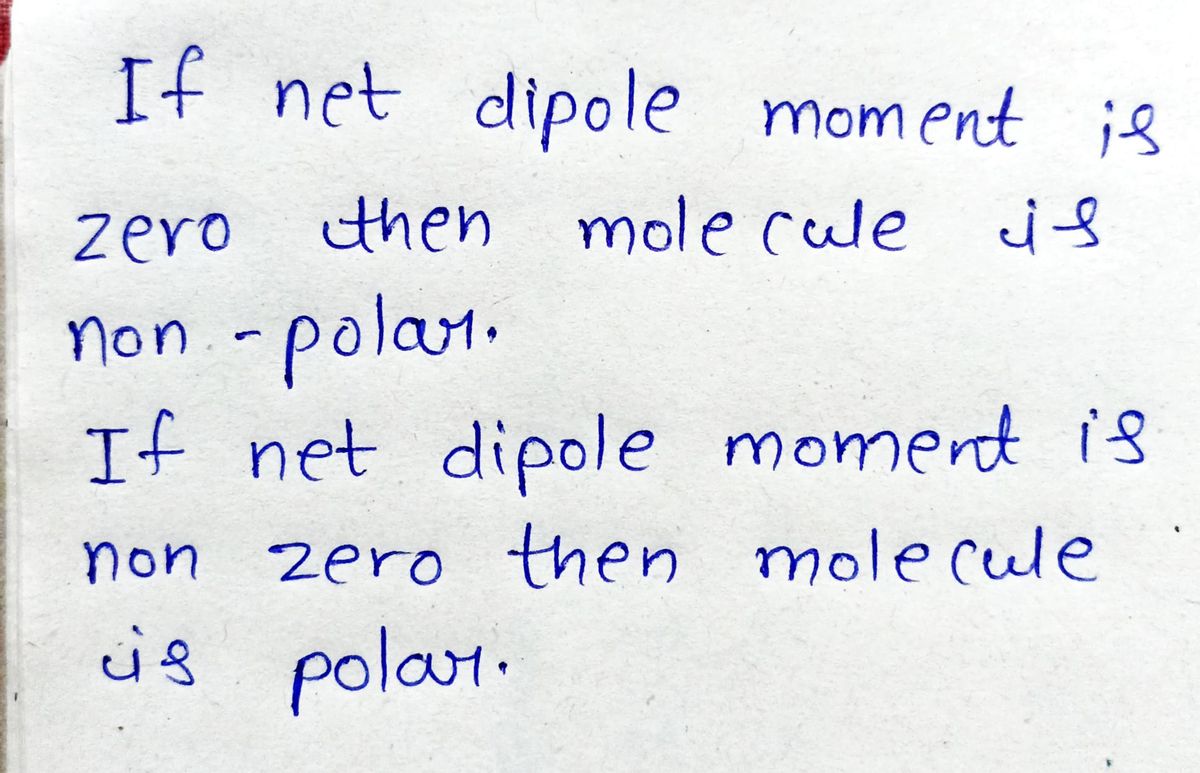 If net dipole moment is
zero then molecule is
non - polar.
If net dipole moment is
non zero then molecule
is polar.